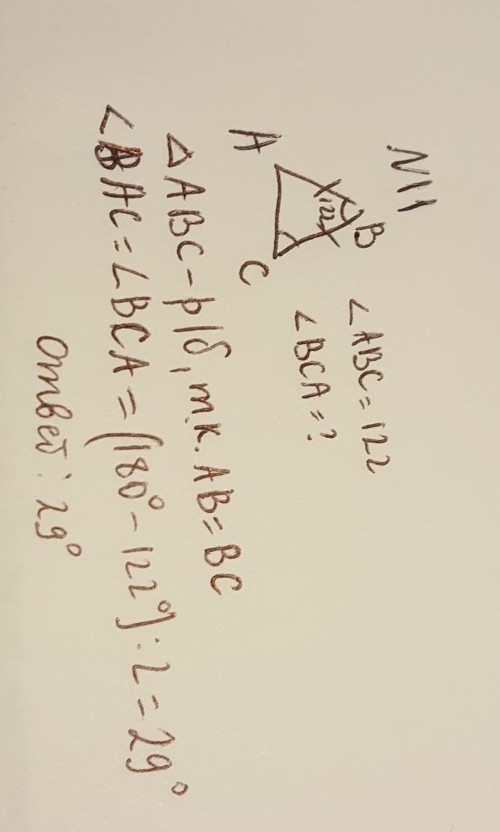 N11
B
∠ABC = 122
122
∠BCA = ?
A
C
△ABC - р/б, т.к. AB = BC
∠BAC = ∠BCA = (180° - 122°) : 2 = 29°
Ответ: 29°